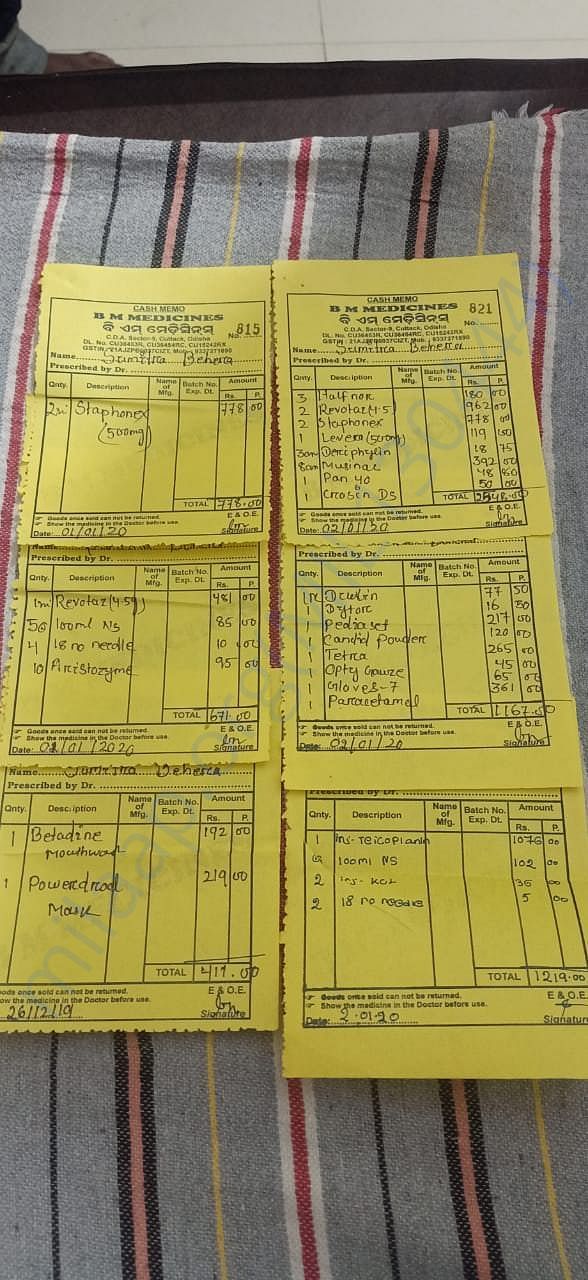 CASH MEMO
B M MEDICINES
ବି ଏମ୍ ମେଡ଼ିସିନ୍ସ୍
C.D.A. Sector-9, Cuttack, Odisha
No. 815
Name Sumitra Behera
Prescribed by Dr.
Qnty. Description Name of Mfg. Batch No. Exp. Dt. Amount Rs. P.
Staphonex 778 00
(500mg)
TOTAL 778.00
Goods once sold can not be returned. E & O.E
Show the medicine in the Doctor before use.
Date: 01/01/20 Signature
CASH MEMO
B M MEDICINES 821
ବି ଏମ୍ ମେଡ଼ିସିନ୍ସ୍ No.
C.D.A. Sector-9, Cuttack, Odisha
Name Sumitra Behera
Prescribed by Dr.
Qnty. Description Name of Mfg. Batch No. Exp. Dt. Amount Rs. P.
3 Halfnor 180 00
2 Revotaz (4.5) 962 00
2 Staphonex 778 00
1 Levera (500mg) 119 50
Deriphylin 18 75
Musinac 392 00
1 Pan 40 48 80
1 Crosin DS 50 00
TOTAL
Goods once sold can not be returned. E & O.E
Show the medicine in the Doctor before use.
Date: 02/01/20 Signature
Prescribed by Dr.
Qnty. Description Name of Mfg. Batch No. Exp. Dt. Amount Rs. P.
Revotaz (4.5g) 481 00
100ml NS 85 00
4 18 no needle 10 00
10 Aristozyme 95 00
TOTAL 671.00
Goods once sold can not be returned. E & O.E
Show the medicine in the Doctor before use.
Date: 02/01/2020 Signature
Prescribed by Dr.
Qnty. Description Name of Mfg. Batch No. Exp. Dt. Amount Rs. P.
77 50
Dytorc 16 50
1 Pediaset 217 00
1 Candid Powder 120 00
1 Tetra 265 00
1 Opty Gauze 45 00
1 Gloves-7 65 00
1 Paracetamol 361 00
TOTAL 1167.00
Goods once sold can not be returned. E & O.E.
Show the medicine in the Doctor before use.
Date: 02/01/20 Signature
Name Sumitra Behera
Prescribed by Dr.
Qnty. Description Name of Mfg. Batch No. Exp. Dt. Amount Rs. P.
1 Betadine 192 00
Mouthwash
1 219 00
Mask
TOTAL 411.00
Goods once sold can not be returned. E & O.E
Show the medicine in the Doctor before use.
26/12/19 Signature
Prescribed by Dr.
Qnty. Description Name of Mfg. Batch No. Exp. Dt. Amount Rs. P.
1 Inj- Teicoplanin 1076 00
100ml NS 102 00
2 Inj- KCL 36 00
2 18 no needle 5 00
TOTAL 1219.00
Goods once sold can not be returned. E & O.E.
Show the medicine in the Doctor before use.
Date: 2.01.20 Signature